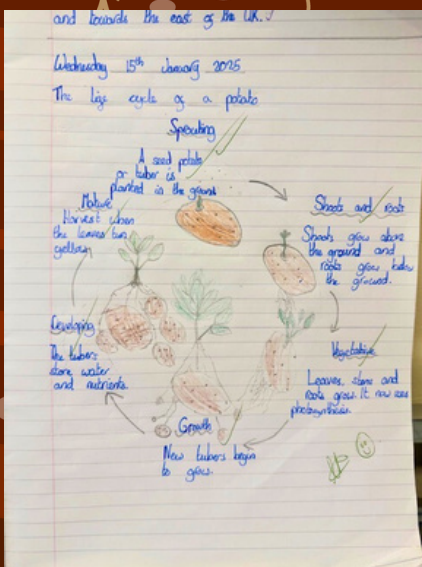 and towards the east of the UK.
Wednesday 15th January 2025
The life cycle of a potato
Sprouting
A seed potato
or tuber is
planted in the ground
Shoots and roots
Shoots grow above
the ground and
roots grow below
the ground.
Vegetative
Leaves, stems and
roots grow. It now uses
photosynthesis.
Growth
New tubers begin
to grow.
Developing
The tubers
store water
and nutrients.
Mature
Harvest when
the leaves turn
yellow.